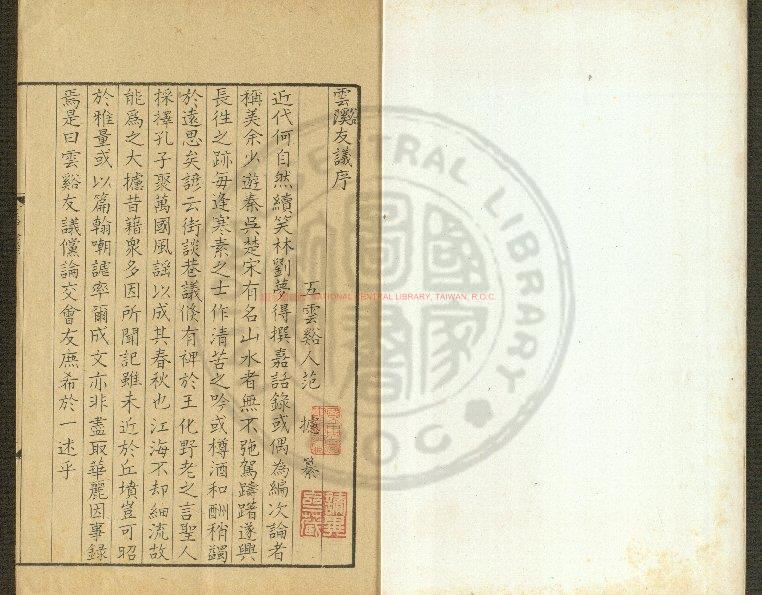 雲谿友議序
五雲谿人范攄纂
近代何自然續笑林劉夢得撰嘉話錄或偶為編次論者
稱美余少遊秦吳楚宋有名山水者無不弛駕躊躇遂興
長往之跡每逢寒素之士作清苦之吟或樽酒和酬稍蠲
於遠思矣諺云街談巷議倏有裨於王化野老之言聖人
採擇孔子聚萬國風謠以成其春秋也江海不却細流故
能為之大攄昔藉衆多因所聞記雖未近於丘墳豈可昭
於雅量或以篇翰嘲謔率爾成文亦非盡取華麗因事錄
焉是曰雲谿友議儻論交會友庶希於一述乎
NATIONAL CENTRAL LIBRARY, TAIWAN, R.O.C.
CENTRAL LIBRARY
ROC
國家圖書